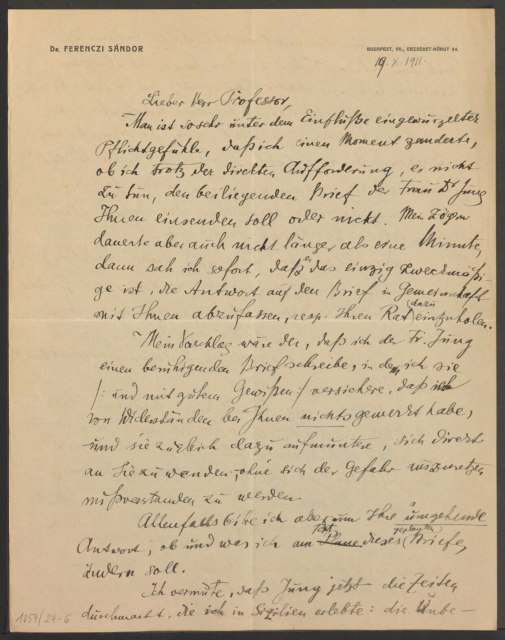 DR. FERENCZI SÁNDOR
BUDAPEST, VII., ERZSÉBET-KÖRUT 54.
19. X. 1911.
Lieber Herr Professor,
Man ist so sehr unter dem Einfluße eingewurzelter
Pflichtgefühle, daß ich einen Moment zauderte,
ob ich trotz der direkten Aufforderung, es nicht
zu tun, den beiliegenden Brief der Frau Dr Jung
Ihnen einsenden soll oder nicht. Mein Zögern
dauerte aber auch nicht länger, als eine Minute,
dann sah ich sofort, daß das einzig zweckmäßi-
ge ist, die Antwort auf den Brief in Gemeinschaft
mit Ihnen abzufassen, resp. Ihren Rat dazu einzuholen.
Mein Vorschlag wäre der, daß ich der Fr. Jung
einen beruhigenden Brief schreibe, in dem ich sie
/: und mit gutem Gewissen :/ versichere, daß ich
von Widerständen bei Ihnen nichts gemerkt habe,
und sie zugleich dazu aufmuntere, sich direkt
an Sie zu wenden, ohne sich der Gefahr auszusetzen
mißverstanden zu werden.
Allenfalls bitte ich aber um Ihre umgehende
Antwort, ob und was ich am Text dieses geplanten Briefes
ändern soll.
Ich vermute, daß Jung jetzt die Zeiten
durchmacht, die ich in Sizilien erlebte: die Unbe-
1054/24-6